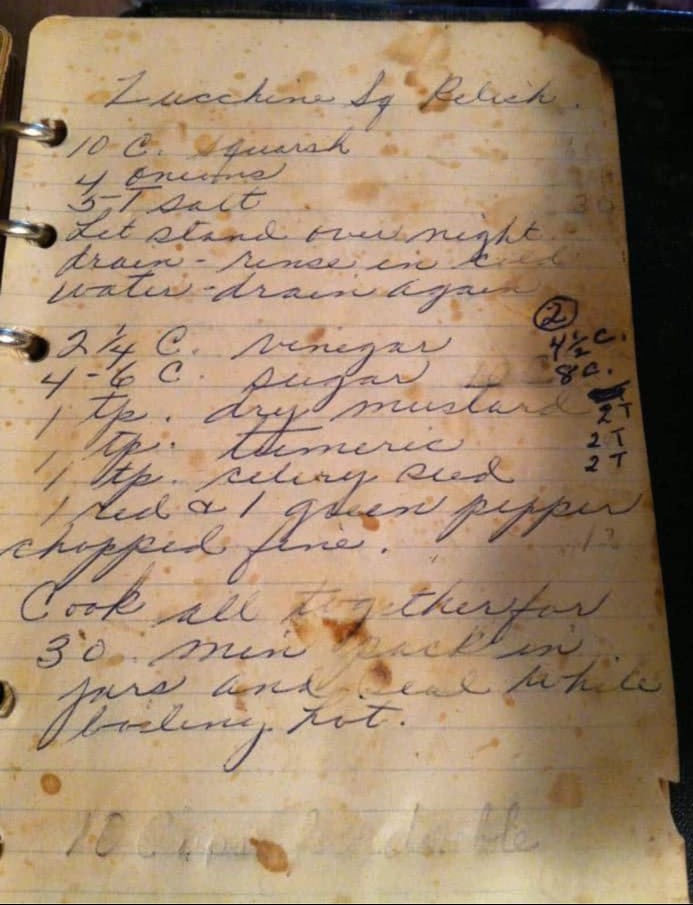 Zucchine Sq Relish.
10 C. squarsh
4 onions
5 T salt
Let stand over night
drain - rinse in cold
water - drain again
②
2 1/4 C. vinegar 4 1/2 C.
4-6 C. sugar 8 C.
1 tp. dry mustard 2 T
1 tp. tumeric 2 T
1 tp. celery seed 2 T
1 red & 1 green pepper
chopped fine.
Cook all together for
30 min pack in
jars and seal while
boiling hot.
10 double